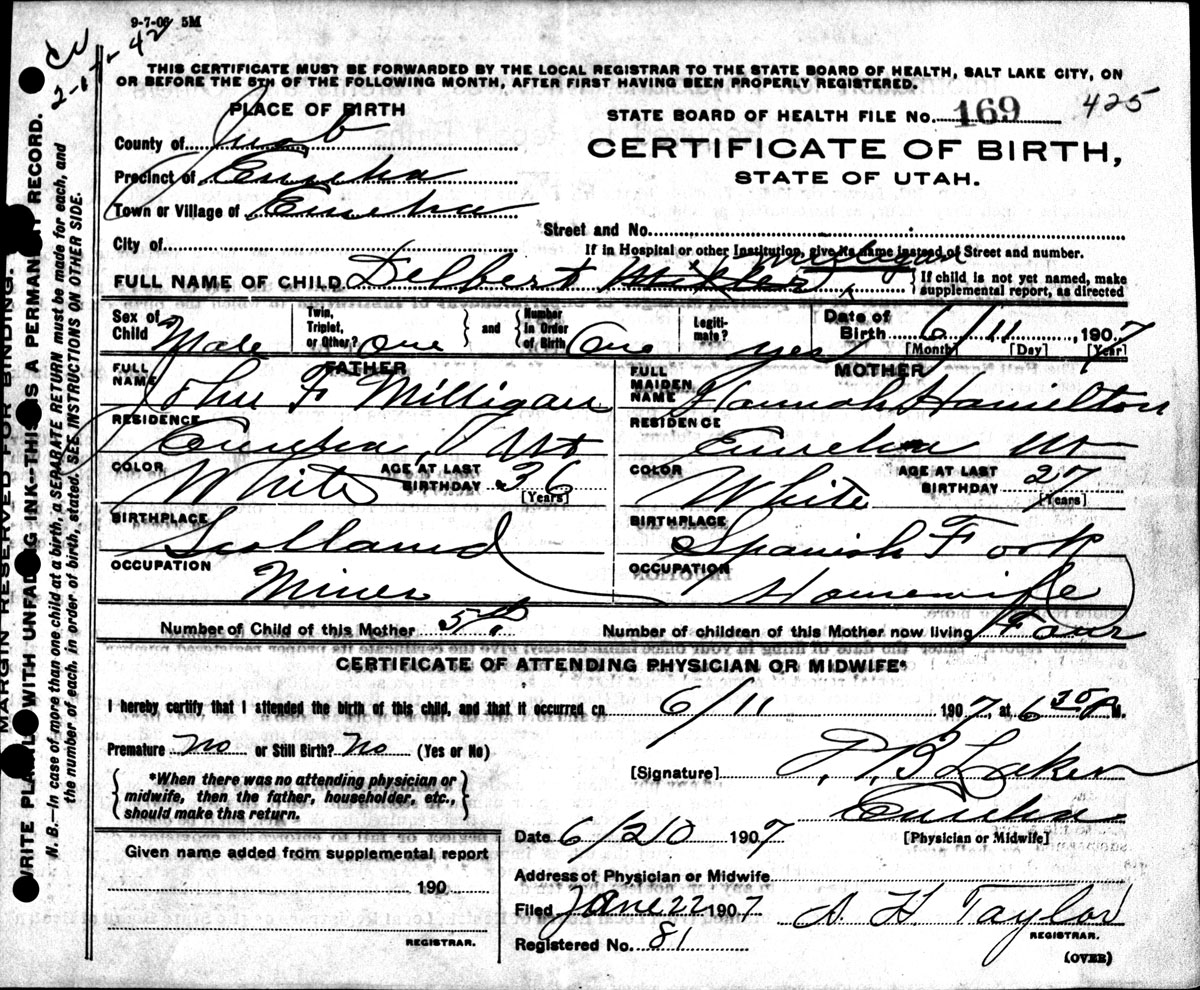 9-7-06 5M
2-1-42
THIS CERTIFICATE MUST BE FORWARDED BY THE LOCAL REGISTRAR TO THE STATE BOARD OF HEALTH, SALT LAKE CITY, ON
OR BEFORE THE 5TH OF THE FOLLOWING MONTH, AFTER FIRST HAVING BEEN PROPERLY REGISTERED.
PLACE OF BIRTH
STATE BOARD OF HEALTH FILE No. 169 425
County of Juab
CERTIFICATE OF BIRTH,
STATE OF UTAH.
Precinct of Eureka
Town or Village of Eureka
Street and No.
City of
If in Hospital or other Institution, give its name instead of Street and number.
FULL NAME OF CHILD Delbert Milligan
If child is not yet named, make
supplemental report, as directed
Sex of Child Male
Twin, Triplet, or Other? One and Number in Order of Birth One
Legiti-mate? yes
Date of Birth 6/11, 1907
[Month] [Day] [Year]
FATHER
MOTHER
FULL NAME John F Milligan
FULL MAIDEN NAME Hannah Hamilton
RESIDENCE Eureka, Ut
RESIDENCE Eureka Ut
COLOR White AGE AT LAST BIRTHDAY 36 [Years]
COLOR White AGE AT LAST BIRTHDAY 27 [Years]
BIRTHPLACE Scotland
BIRTHPLACE Spanish Fork
OCCUPATION Miner
OCCUPATION Housewife
Number of Child of this Mother 5th
Number of children of this Mother now living Four
CERTIFICATE OF ATTENDING PHYSICIAN OR MIDWIFE*
I hereby certify that I attended the birth of this child, and that it occurred on 6/11 1907, at 6 P M.
Premature no or Still Birth? No (Yes or No)
*When there was no attending physician or
midwife, then the father, householder, etc.,
should make this return.
[Signature]
Eureka
[Physician or Midwife]
Date 6/20 1907
Given name added from supplemental report
190
REGISTRAR.
Address of Physician or Midwife
Filed June 22 1907 A H Taylor
REGISTRAR.
Registered No. 81
(OVER)
MARGIN RESERVED FOR BINDING.
WRITE PLAINLY WITH UNFADING INK--THIS IS A PERMANENT RECORD.
N. B.—In case of more than one child at a birth, a SEPARATE RETURN must be made for each, and
the number of each, in order of birth, stated. SEE INSTRUCTIONS ON OTHER SIDE.